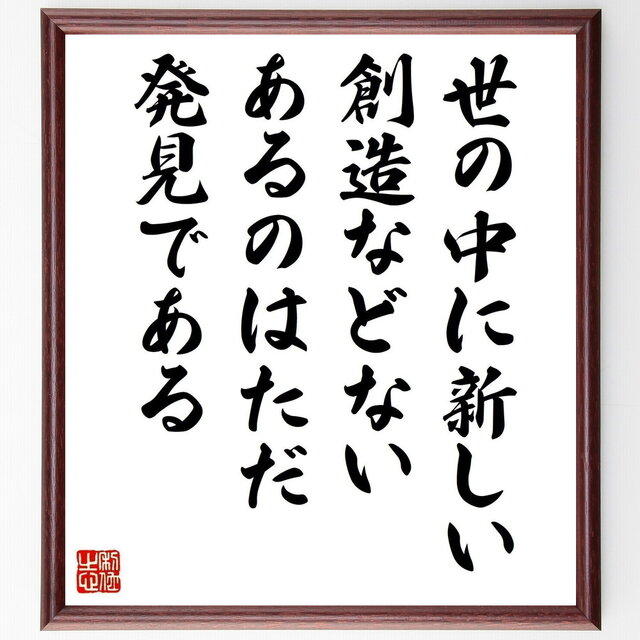 世の中に新しい
創造などない
あるのはただ
発見である